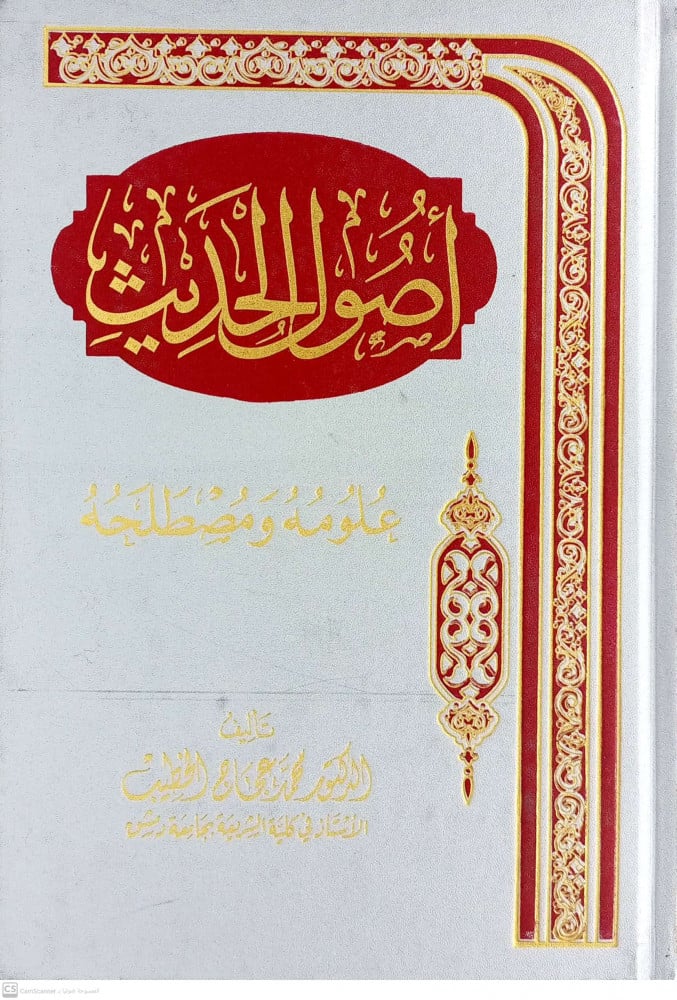 أُصُولُ الحَدِيثِ
عُلُومُهُ وَمُصْطَلَحُهُ
تَأليف
الدكتور محمد عجاج الخطيب
الأستاذ في كلية الشريعة بجامعة دمشق
CS CamScanner الممسوحة ضوئيا بـ